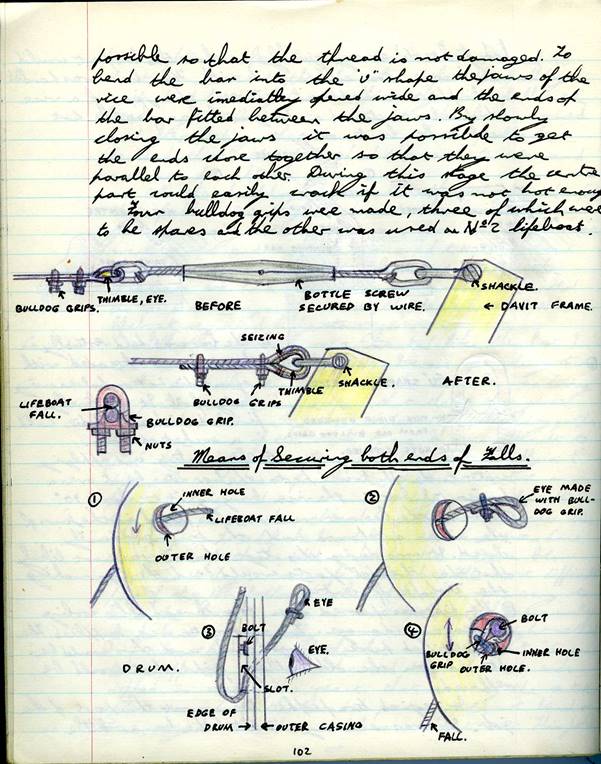 possible so that the thread is not damaged. To
bend the bar into the "U" shape the jaws of the
vice were imediatley opened wide and the ends of
the bar fitted between the jaws. By slowly
closing the jaws it was possible to get
the ends close together so that they were
parallel to each other. During this stage the centre
part could easily crack if it was not hot enough
Four bulldog grips were made, three of which were
to be spares and the other was used on No 2 lifeboat.
BULLDOG GRIPS.
THIMBLE, EYE.
BEFORE
BOTTLE SCREW
SECURED BY WIRE.
SHACKLE.
← DAVIT FRAME.
SEIZING
BULLDOG GRIPS
THIMBLE
SHACKLE.
AFTER.
LIFEBOAT
FALL.
BULLDOG GRIP.
NUTS
Means of Securing both ends of Falls.
1
INNER HOLE
LIFEBOAT FALL
OUTER HOLE
2
EYE MADE
WITH BULL-
DOG GRIP.
DRUM.
3
EYE
BOLT
EYE.
SLOT.
EDGE OF
DRUM
OUTER CASING
4
BOLT
BULLDOG
GRIP
INNER HOLE
OUTER HOLE.
FALL.
102